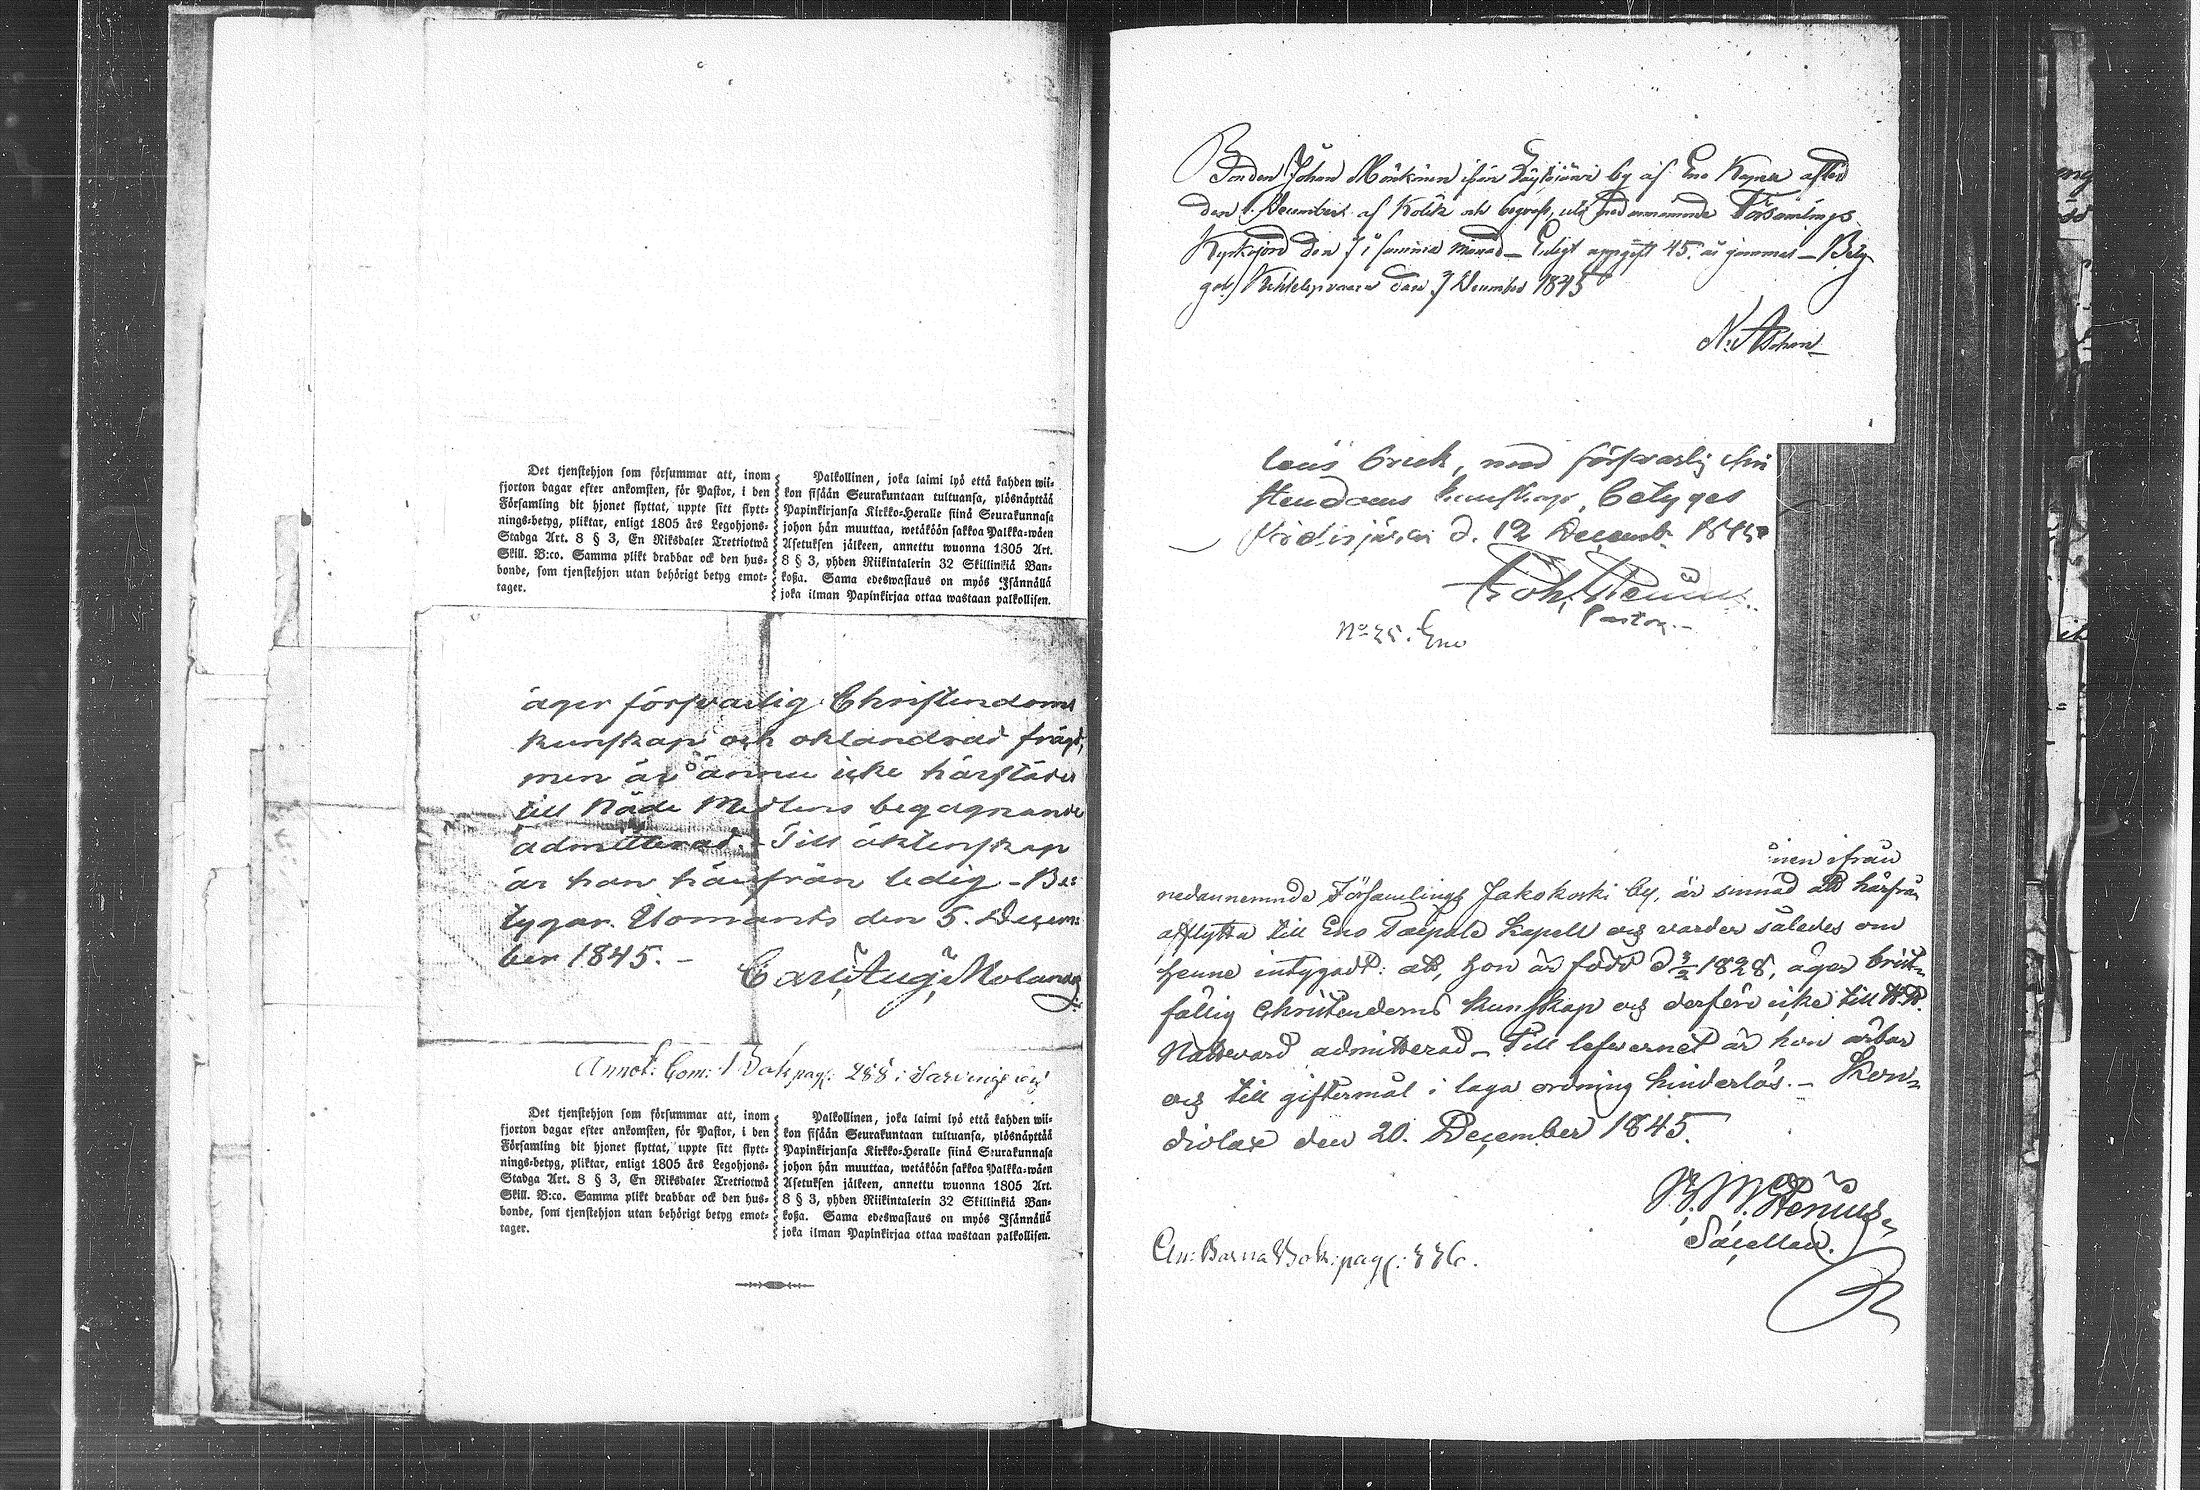 Det tjenstehjon som försummar att, inom
fjorton dagar efter ankomsten, för Pastor, i den
Församling dit hjonet flyttat, uppte sitt flytt-
nings-betyg, pliktar, enligt 1805 års Legohjons-
Stadga Art. 8 § 3, En Riksdaler Trettiotwå
Skill. B:co. Samma plikt drabbar ock den hus-
bonde, som tjenstehjon utan behörigt betyg emot-
tager.
Palkollinen, joka laimi lyö että kahden wii-
kon sisään Seurakuntaan tultuansa, ylösnäyttää
Papinkirjansa Kirkko-Herralle siinä Seurakunnasa
johon hän muuttaa, wetäköön sakkoa Palkka-wäen
Asetuksen jälkeen, annettu wuonna 1805 Art.
8 § 3, yhden Riikintalerin 32 Skillinkiä Ban-
koßa. Sama edeswastaus on myös Isännällä
joka ilman Papinkirjaa ottaa wastaan palkollisen.
äger försvarlig Christendoms
kunskap och oklandrad frägd,
men är ännu icke härstädes
till Nåde Medlens begagnande
admitterad. - Till äktenskap
är han härifrån ledig - Be-
tygar. Ilomants den 5. Decem-
ber 1845. -
Carl Aug. Molander
Annot: Com: Bok pag. 288 i Sarvinge
Det tjenstehjon som försummar att, inom
fjorton dagar efter ankomsten, för Pastor, i den
Församling dit hjonet flyttat, uppte sitt flytt-
nings-betyg, pliktar, enligt 1805 års Legohjons-
Stadga Art. 8 § 3, En Riksdaler Trettiotwå
Skill. B:co. Samma plikt drabbar ock den hus-
bonde, som tjenstehjon utan behörigt betyg emot-
tager.
Palkollinen, joka laimi lyö että kahden wii-
kon sisään Seurakuntaan tultuansa, ylösnäyttää
Papinkirjansa Kirkko-Heralle siinä Seurakunnasa
johon hän muuttaa, wetäköön sakkoa Palkka-wäen
Asetuksen jälkeen, annettu wuonna 1805 Art.
8 § 3, yhden Riikintalerin 32 Skillinkiä Ban-
koßa. Sama edeswastaus on myös Isännällä
joka ilman Papinkirjaa ottaa wastaan palkollisen.
Bonden Johan Mönkönen ifrån by af Eno
den 1. December af Kolik och begrofs uti nedannämnde Församlings
Kyrkojord den 7 i samma månad - Enligt uppgift 45. år gammal - Bety-
gar/ den 7 December 1845
N. Aschan
lös Brick, med försvarlig chri
stendoms kunskap, betyges
d. 12 Decemb. 1845
Joh. Stenius
Pastor. -
No 25. Eno
inen ifrån
nedannemnde Församlings Jakokoski by, är sinnad att härifrån
afflytta till Eno Taipale Kapell och varder således om
henne intygadt: att, hon är född d 3/2 1828, äger brist-
fällig Christendoms kunskap och derföre icke till H. H.
Nattvard admitterad - Till lefvernet är hon ärbar
och till giftermål i laga ordning hinderlös. - Kon-
diolax den 20. December 1845.
M. Stenius
Sacellan.
An: Barna Bok: pag: 336.